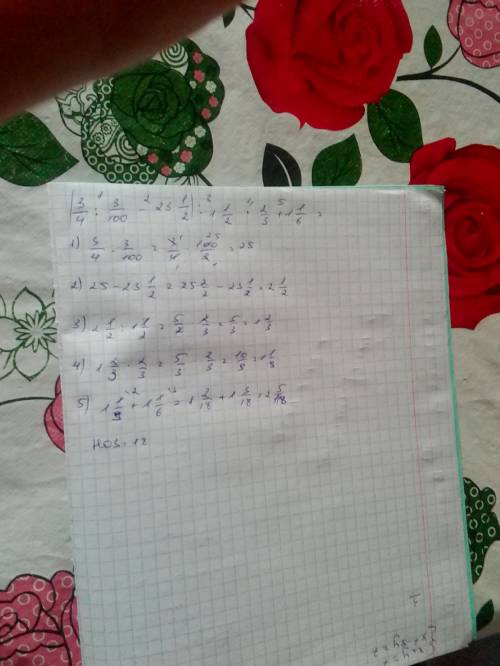 (3/4 : 3/100 - 23 1/2) : 1 1/2 · 2/3 + 1 1/6 =
1) 3/4 : 3/100 = 3/4 · 100/3 = 25
2) 25 - 23 1/2 = 25 2/2 - 23 1/2 = 2 1/2
3) 2 1/2 : 1 1/2 = 5/2 · 2/3 = 5/3 = 1 2/3
4) 1 2/3 · 2/3 = 5/3 · 2/3 = 10/9 = 1 1/9
5) 1 1/9 + 1 1/6 = 1 2/18 + 1 3/18 = 2 5/18
НОЗ = 18